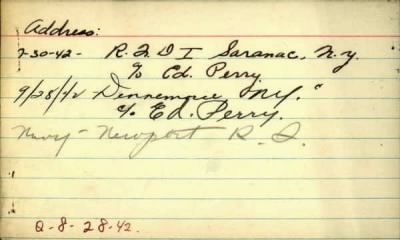 Address:
7-30-42- R.F.D I Saranac, N.Y.
c/o Ed. Perry
9/28/42 N.Y. "
c/o Ed. Perry.
Navy - Newport R.I.
Q-8-28-42.